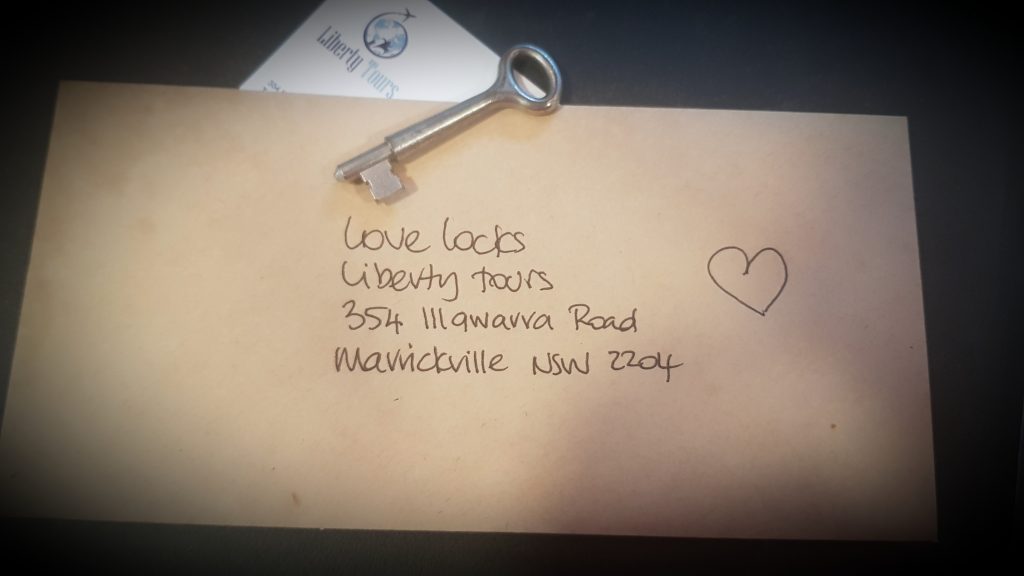 Liberty Tours
Love locks
Liberty tours
354 Illawarra Road
Marrickville NSW 2204